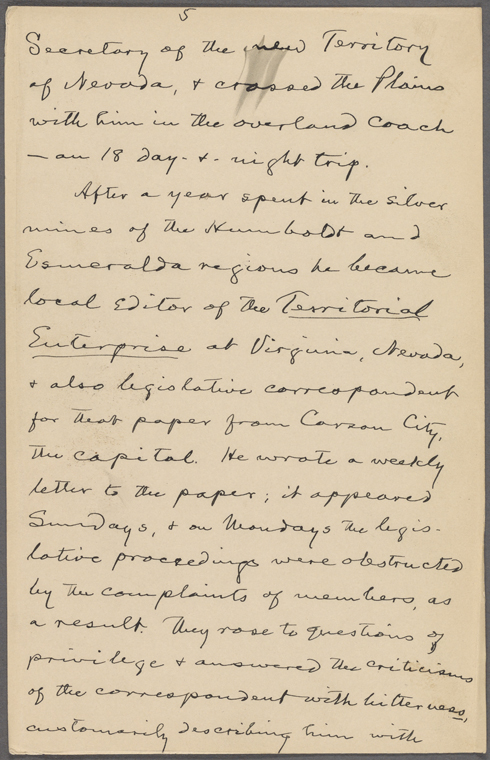 5
Secretary of the new Territory
of Nevada, & crossed the Plains
with him in the overland coach
— an 18 day- & - night trip.
After a year spent in the silver
mines of the Humboldt and
Esmeralda regions he became
local editor of the Territorial
Enterprise at Virginia, Nevada,
& also legislative correspondent
for that paper from Carson City,
the capital. He wrote a weekly
letter to the paper; it appeared
Sundays, & on Mondays the legis-
lative proceedings were obstructed
by the complaints of members, as
a result. They rose to questions of
privilege & answered the criticisms
of the correspondent with bitterness,
customarily describing him with